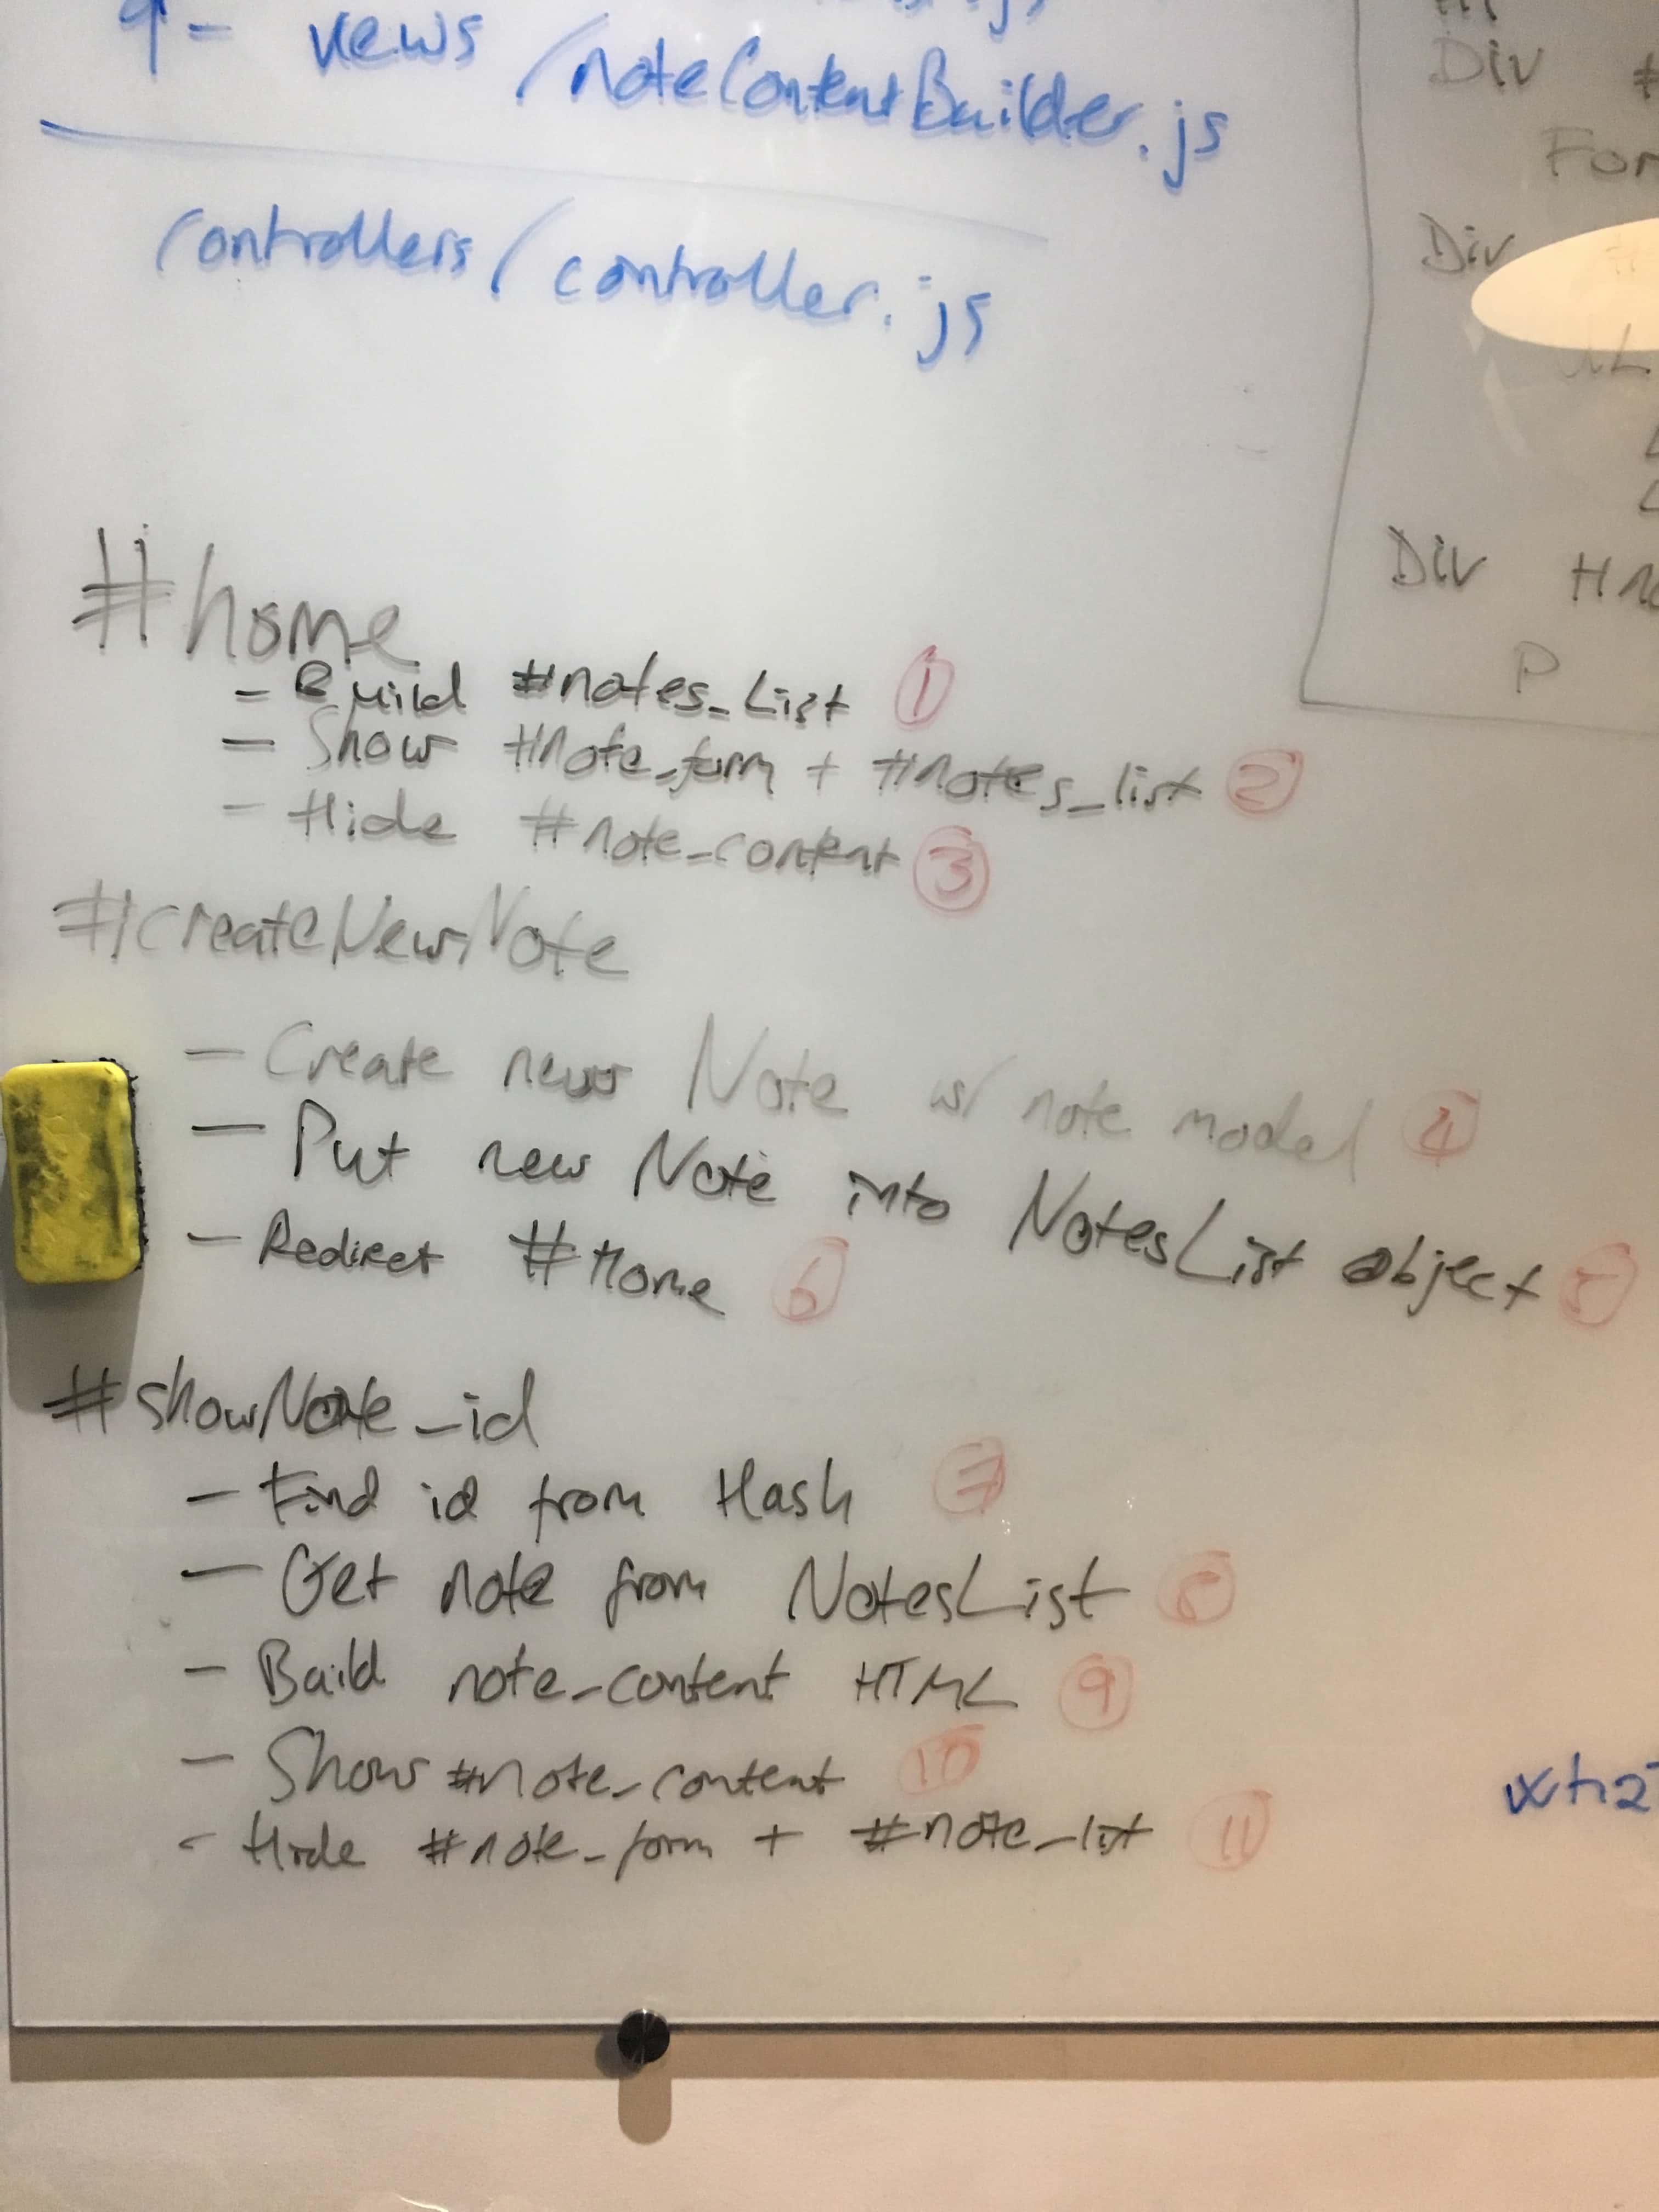 9 - views /noteContentBuilder.js
controllers/controller.js
#home
- Build #notes_List 1
- Show #note_form + #notes_list 2
- Hide #note_content 3
#createNewNote
- Create new Note w/ note model 4
- Put new Note into NotesList object 5
- Redirect #Home 6
#showNote_id
- Find id from Hash 7
- Get note from NotesList 8
- Build note_content HTML 9
- Show #note_content 10
- Hide #note_form + #note_list 11
Div #
For
Div
UL
Div #no
P